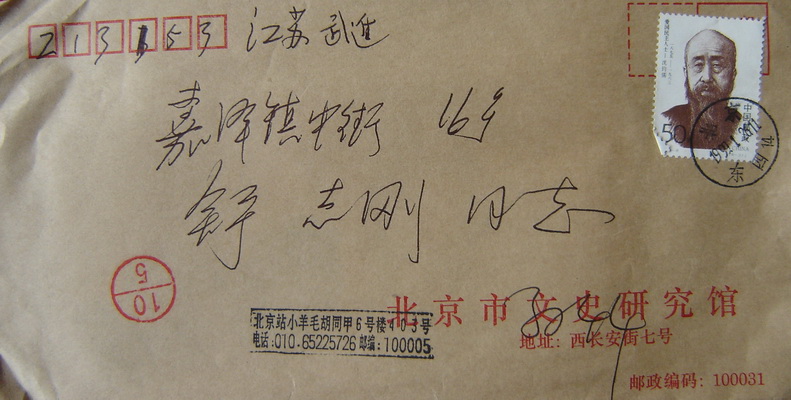 213153 江苏 武进
嘉泽镇中街 16号
舒 志刚 同志
50
中国邮政
10
5
北京市文史研究馆
北京站小羊毛胡同甲6号楼403号
电话:010-65225726 邮编:100005
地址: 西长安街七号
邮政编码: 100031